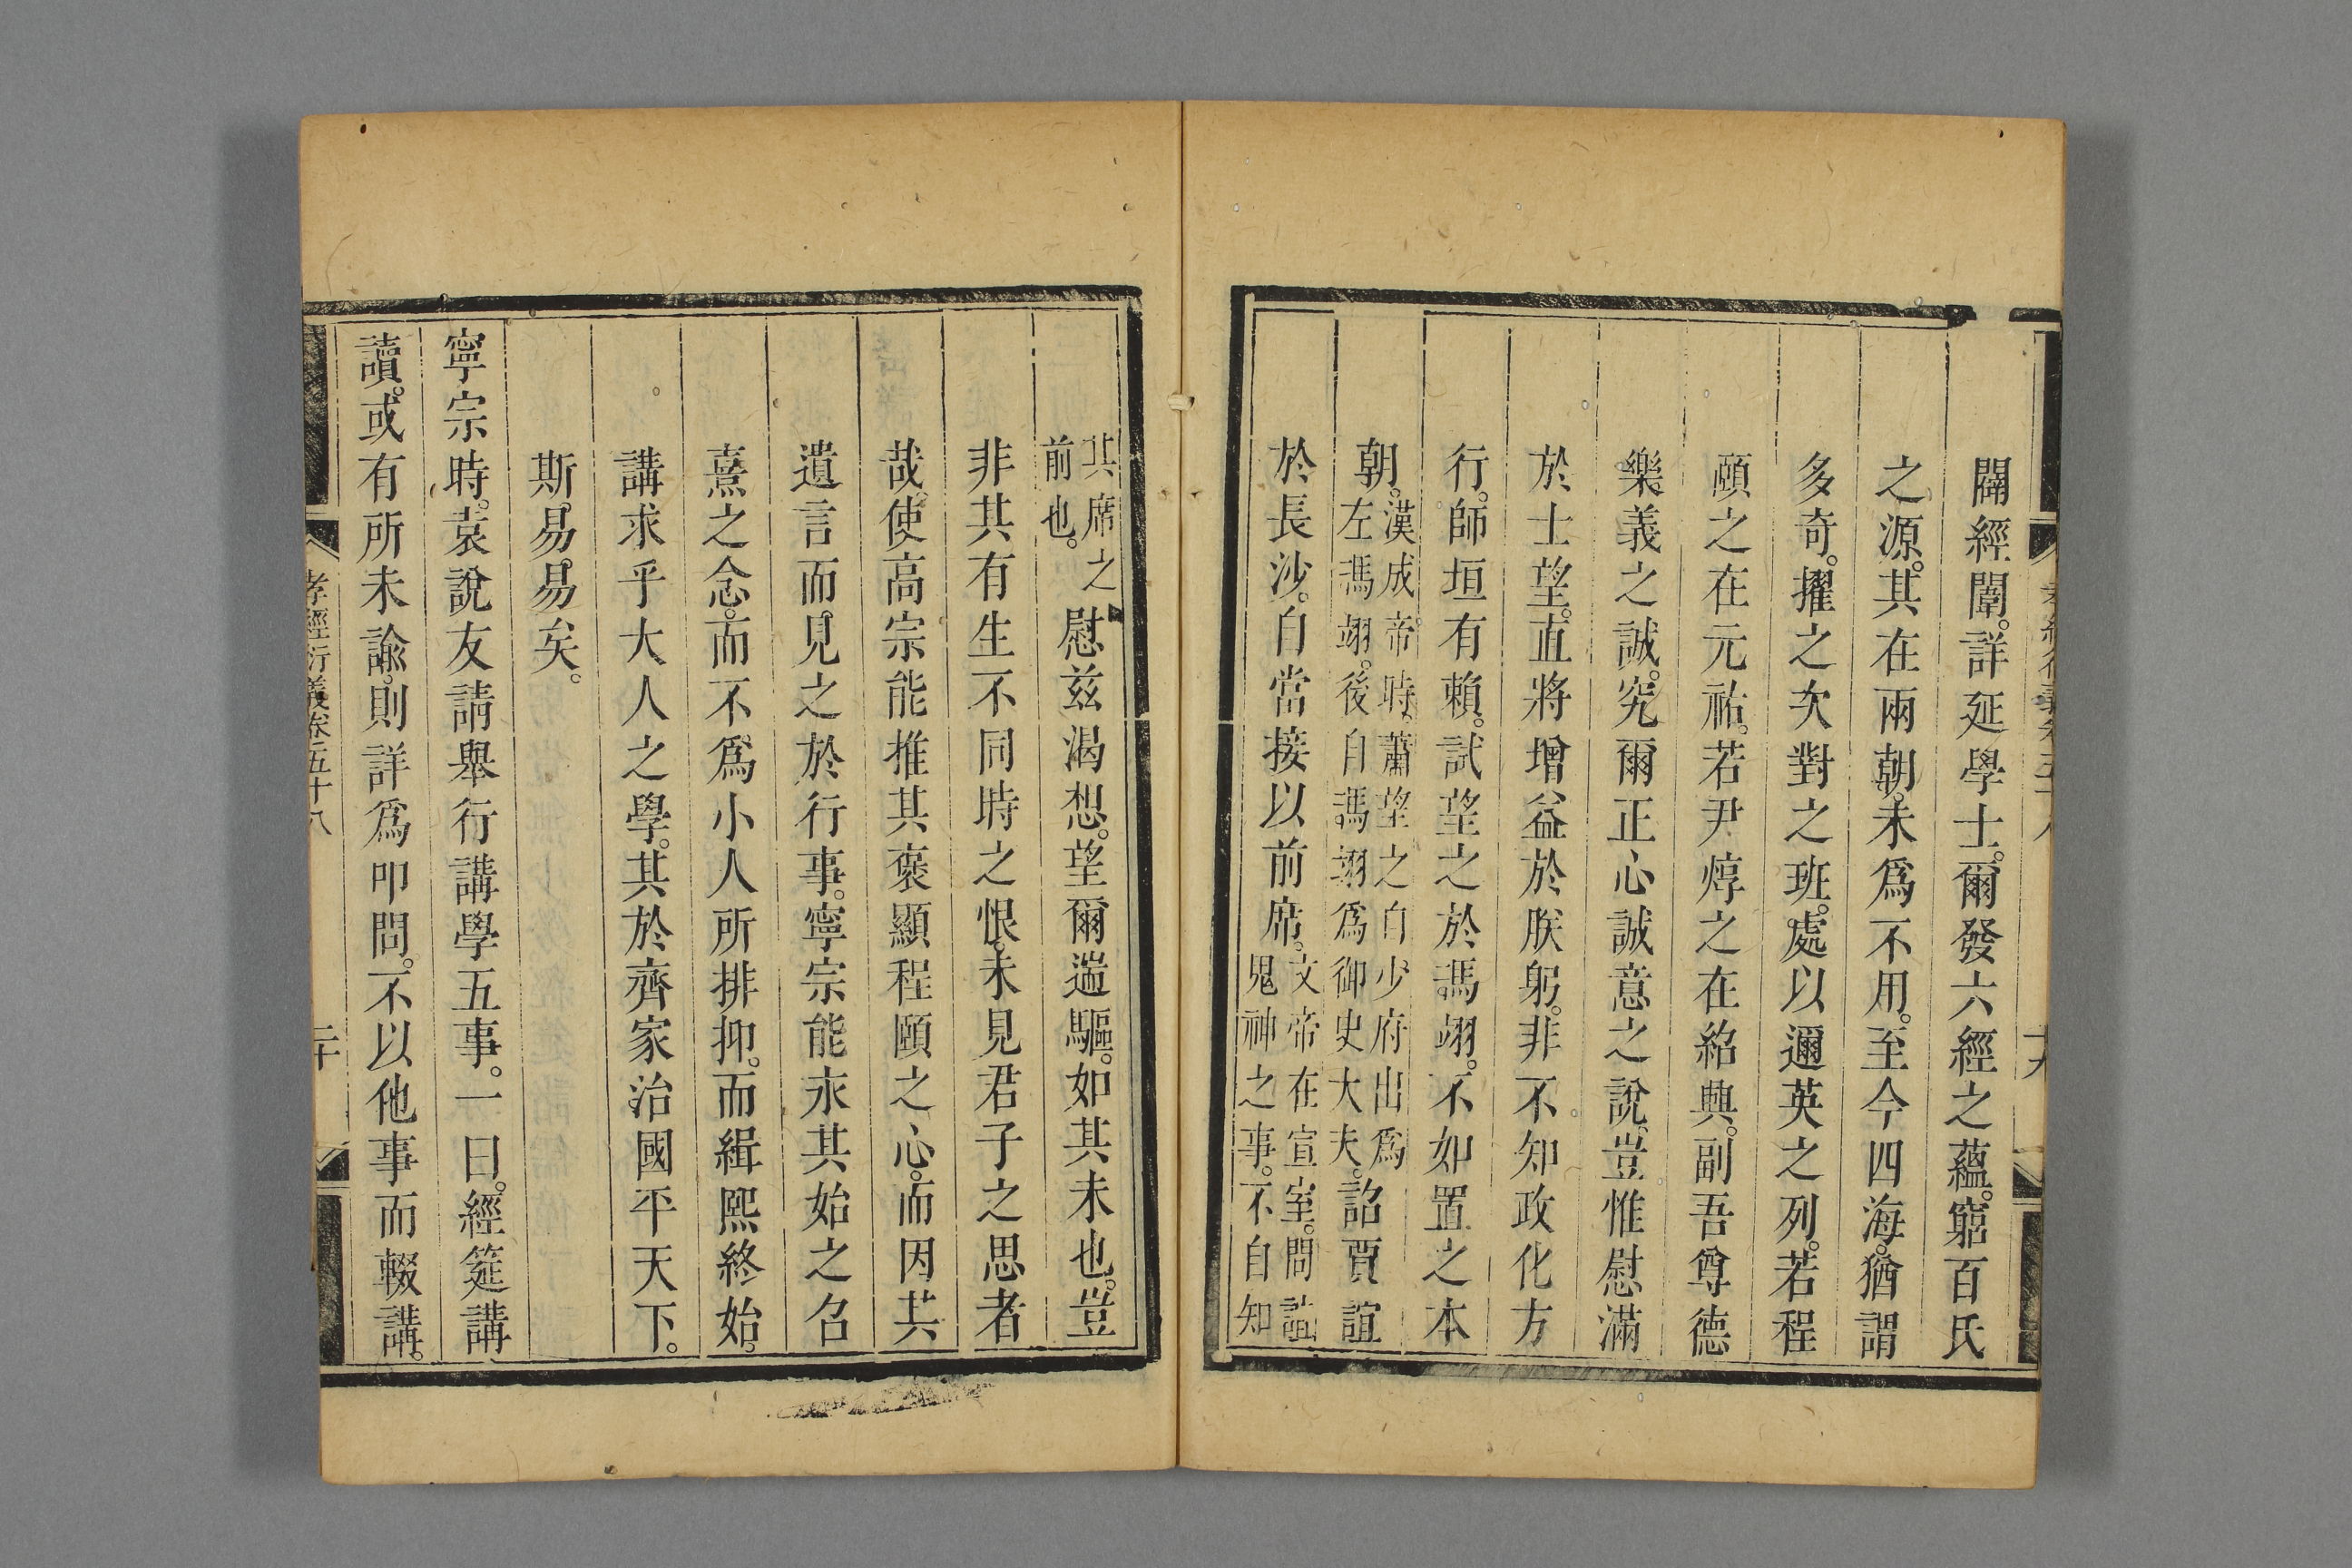 闢經闈。詳延學士。爾發六經之蘊。窮百氏
之源。其在兩朝。未爲不用。至今四海。猶謂
多奇。擢之次對之班。處以邇英之列。若程
頤之在元祐。若尹焞之在紹興。副吾尊德
樂義之誠。究爾正心誠意之說。豈惟慰滿
於士望。直將增益於朕躬。非不知政化方
行。師垣有賴。試望之於馮翊。不如置之本
朝。漢成帝時。蕭望之自少府出爲左馮翊。後自馮翊爲御史大夫。詔賈誼
於長沙。自當接以前席。文帝在宣室。問誼鬼神之事。不自知
孝經衍義卷五十八
十九
其席之前也。慰兹渴想。望爾遄驅。如其未也。豈
非其有生不同時之恨。未見君子之思者
哉。使高宗能推其褒顯程頤之心。而因其
遺言而見之於行事。寧宗能永其始之召
熹之念。而不爲小人所排抑。而緝熙終始。
講求乎大人之學。其於齊家治國平天下。
斯易易矣。
寧宗時。袁說友請舉行講學五事。一曰。經筵講
讀。或有所未諭。則詳爲叩問。不以他事而輟講。
孝經衍義卷五十八
二十